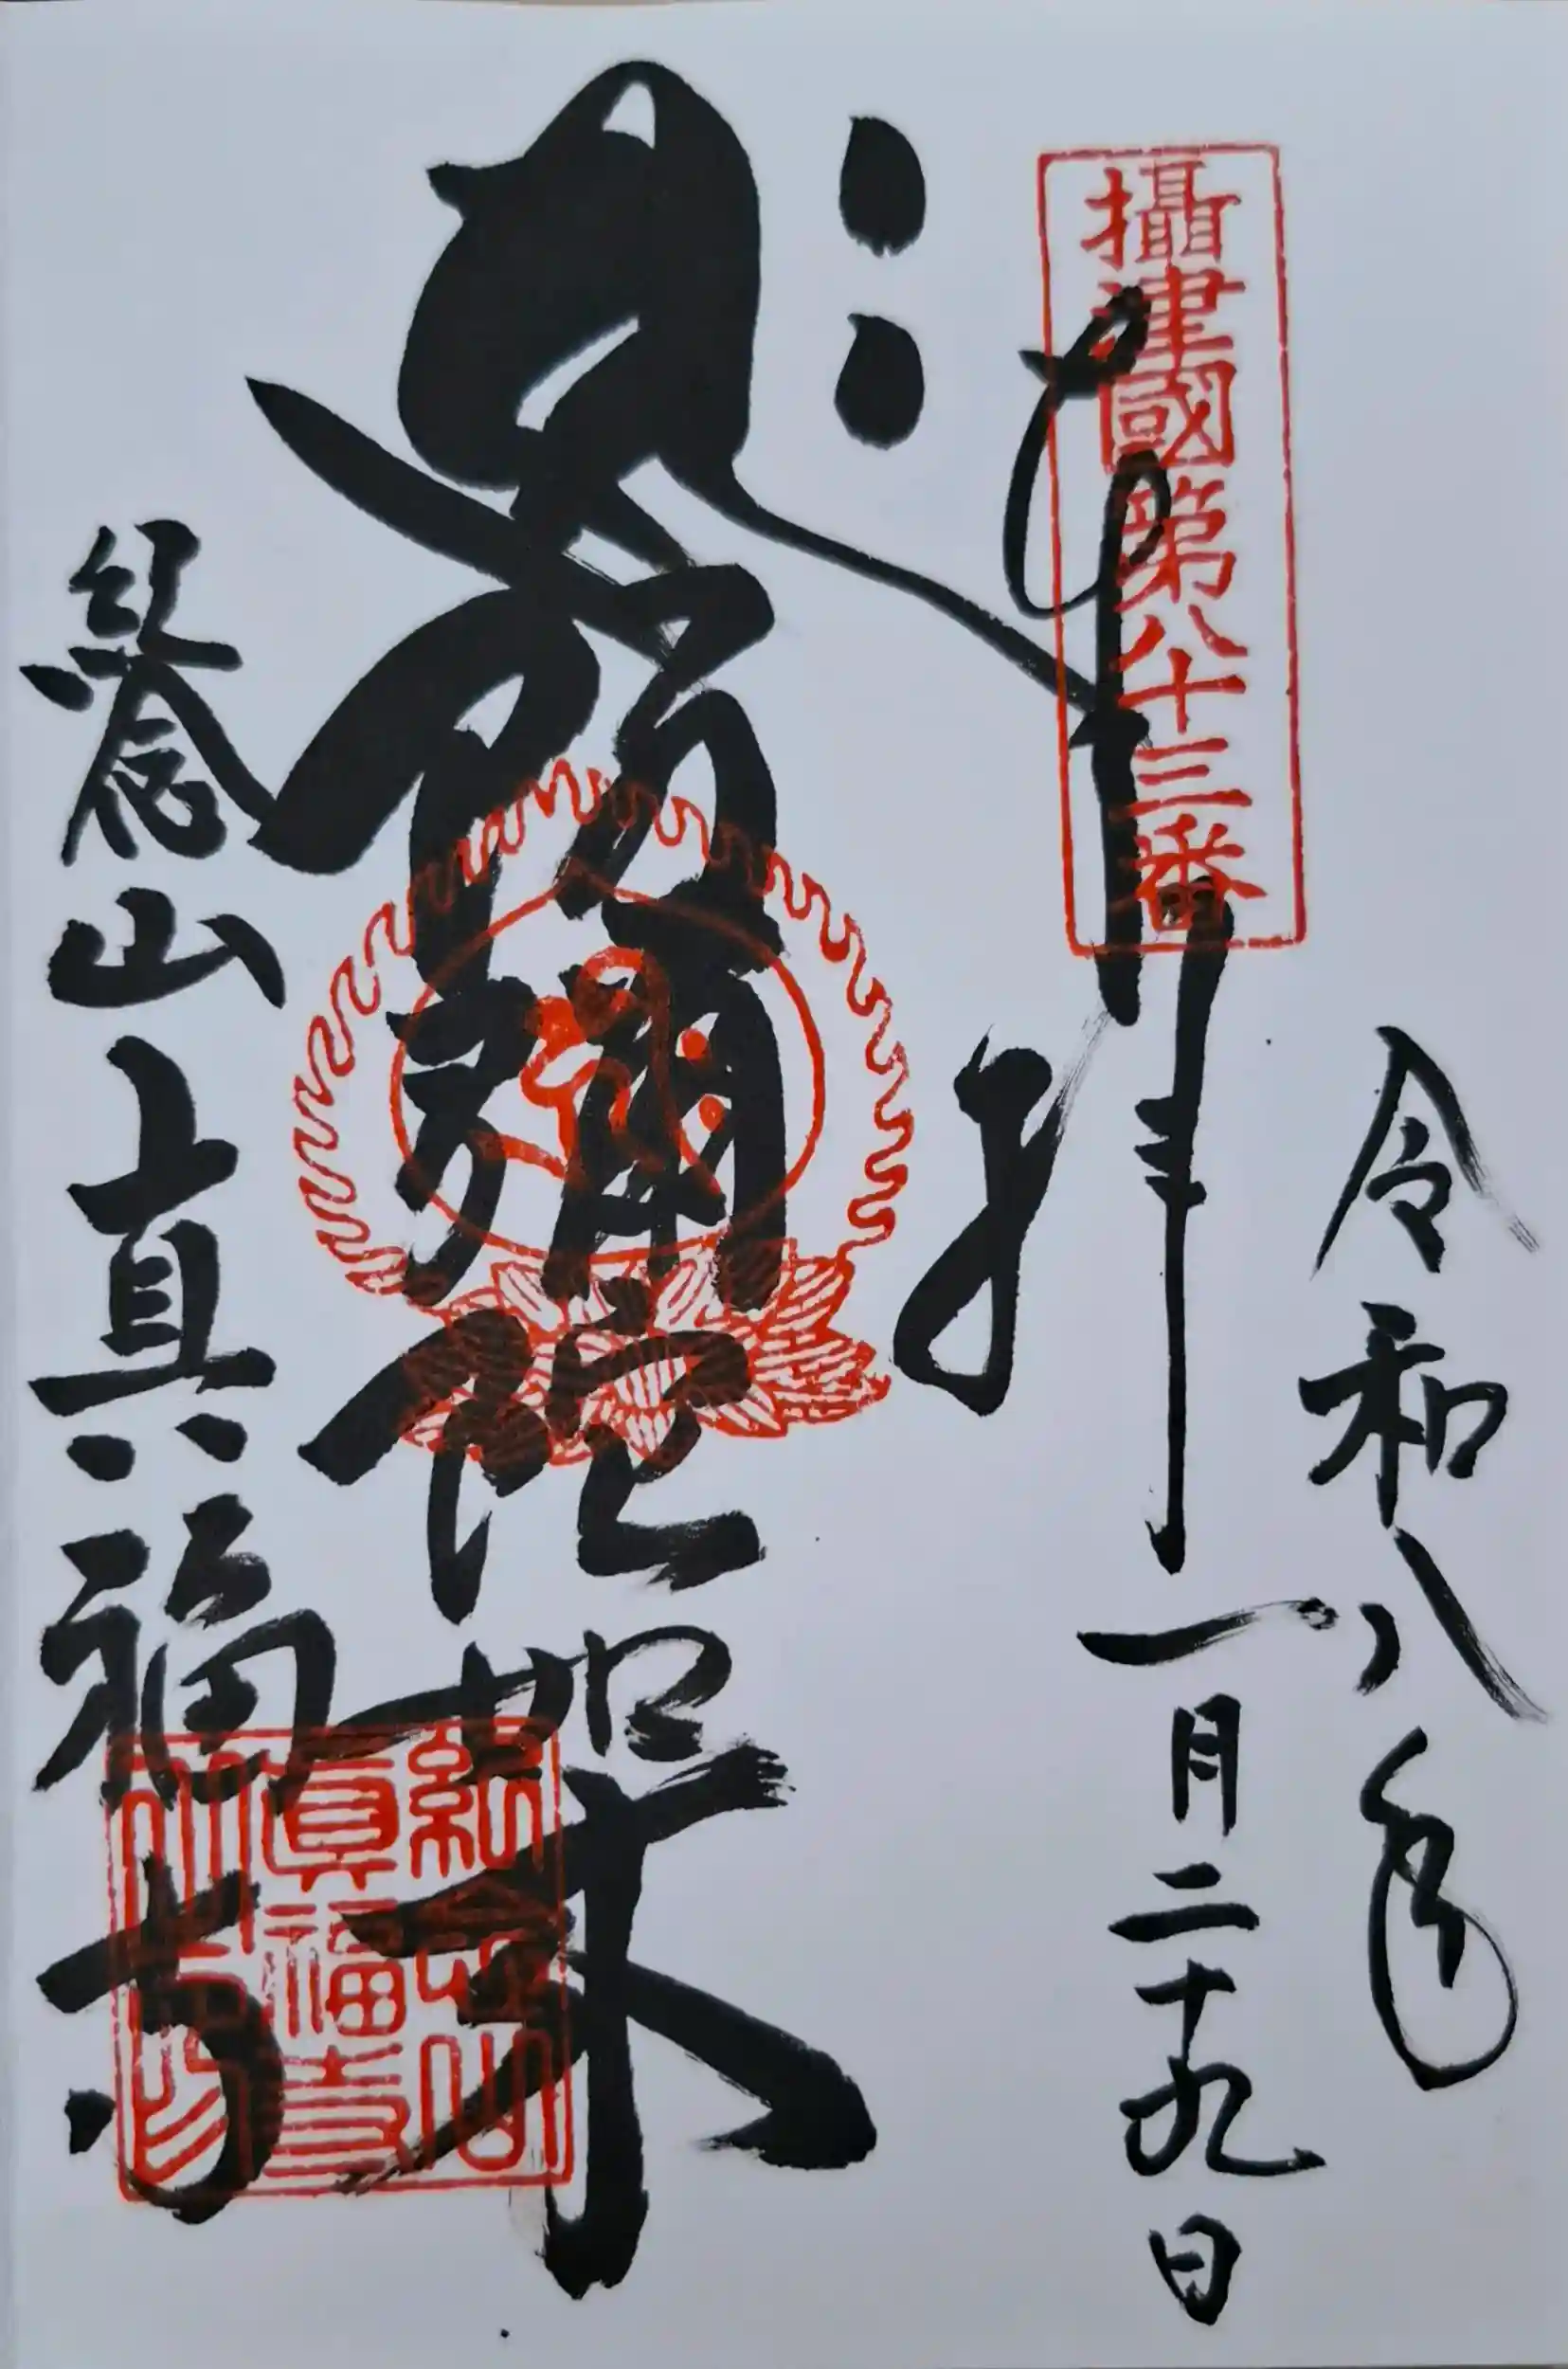 攝津國第八十三番
奉拝
令和八年
一月二十九日
𑖮𑖿𑖨𑖱𑖾
阿彌陀如来
紀念山
真福寺
紀念山
眞福寺